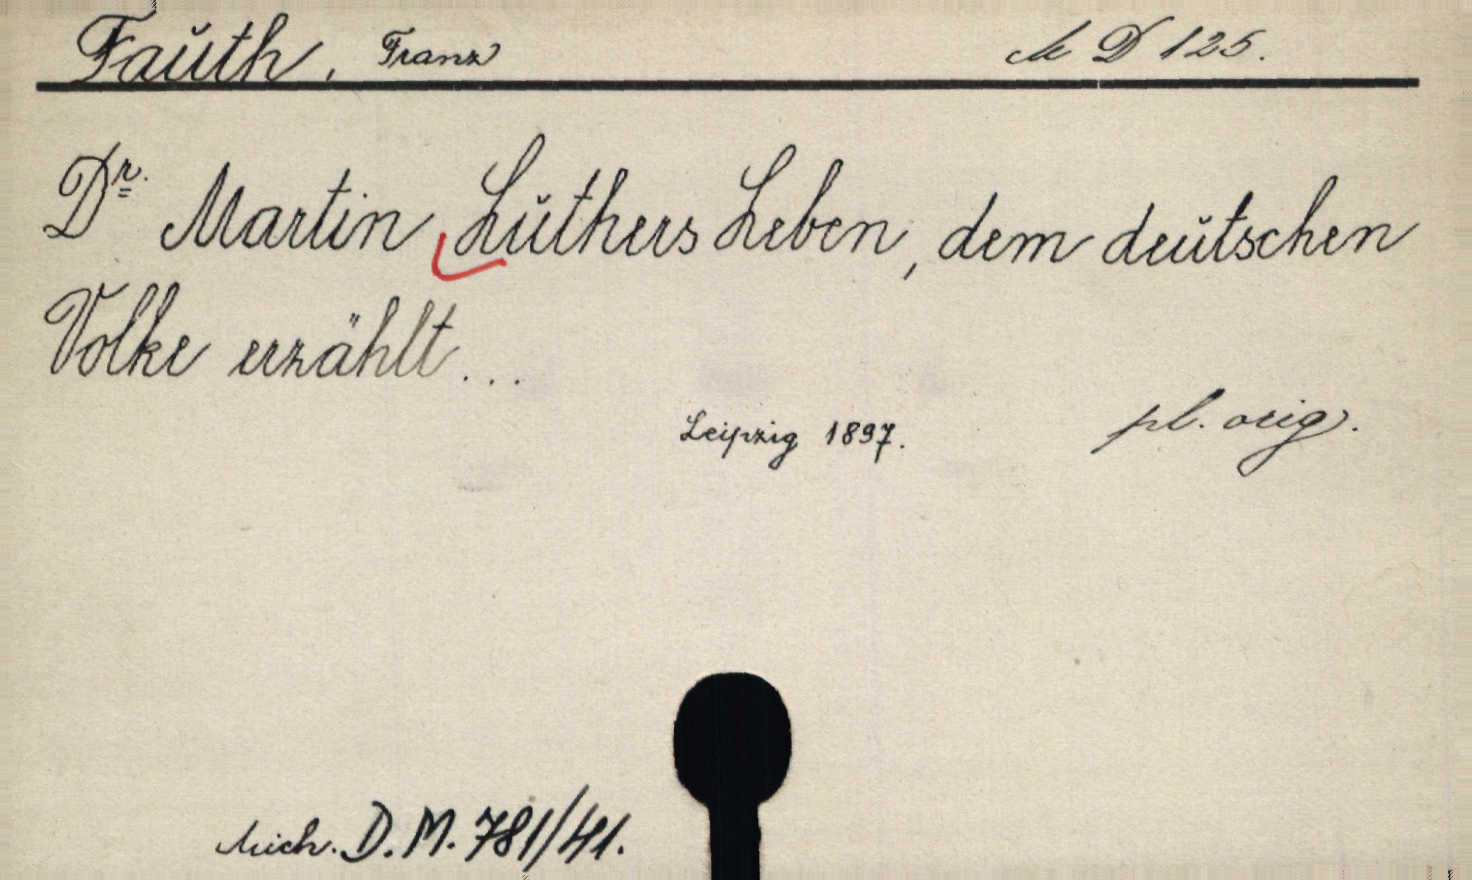 Fauth, Franz M D 125.
Dr. Martin Luthers Leben, dem deutschen
Volke erzählt...
Leipzig 1897. pl. orig.
Mich. D. M. 781/41.